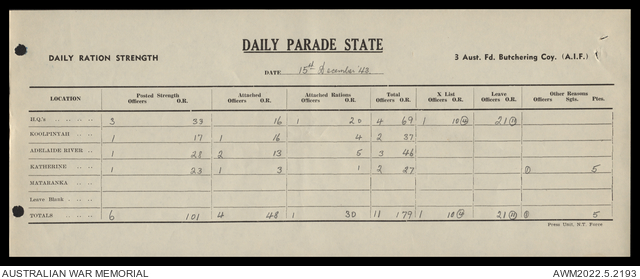 DAILY PARADE STATE
DAILY RATION STRENGTH
3 Aust. Fd. Butchering Coy. (A.I.F.)
DATE 15th December 43.
LOCATION Posted Strength Officers O.R. Attached Officers O.R. Attached Rations Officers O.R. Total Officers O.R. X List Officers O.R. Leave Officers O.R. Other Reasons Officers Sgts. Ptes.
H.Q.'s .. .. .. 3 33 16 1 20 4 69 1 10 21
KOOLPINYAH .. .. 1 17 1 16 4 2 37
ADELAIDE RIVER .. .. 1 28 2 13 5 3 46
KATHERINE .. .. 1 23 1 3 1 2 27 5
MATARANKA .. ..
Leave Blank .. .. ..
TOTALS .. .. .. 6 101 4 48 1 30 11 179 1 10 21 5
Press Unit, N.T. Force
AUSTRALIAN WAR MEMORIAL
AWM2022.5.2193